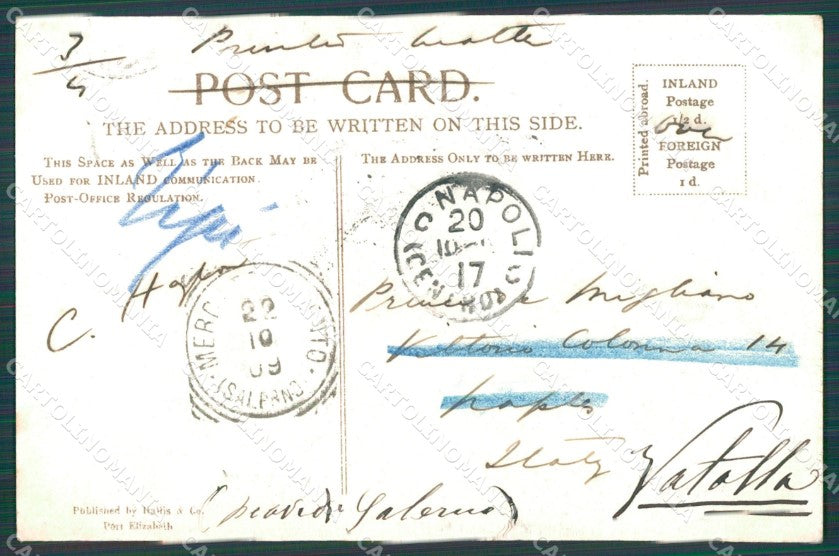 3/4
Printed matter
POST CARD.
THE ADDRESS TO BE WRITTEN ON THIS SIDE.
THIS SPACE AS WELL AS THE BACK MAY BE
USED FOR INLAND COMMUNICATION.
POST-OFFICE REGULATION.
THE ADDRESS ONLY TO BE WRITTEN HERE.
Printed abroad.
INLAND
Postage
1/2 d.
FOREIGN
Postage
1 d.
NAPOLI
20
10
17
MERC
22
10
09
C.
Migliano
Vittorio Colonna 14
Naples
Italy
Vatolla
Salerno)
Published by Hallis & Co.
Port Elizabeth
CARTOLINOMANIA